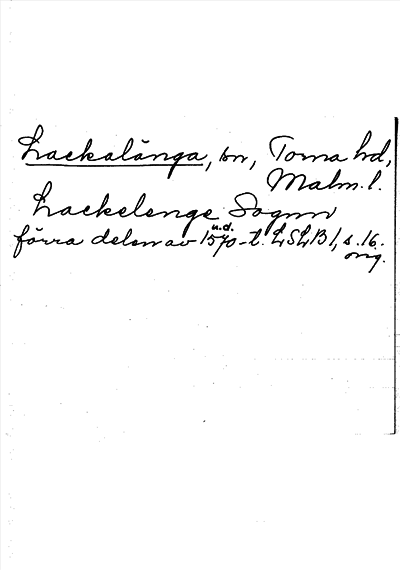 Lackalänga, sn, Torna hd,
Malm. l.
Lackelenge Sognn
u.d.
förra delen av 1570-t. LSLB 1, s. 16.
orig.